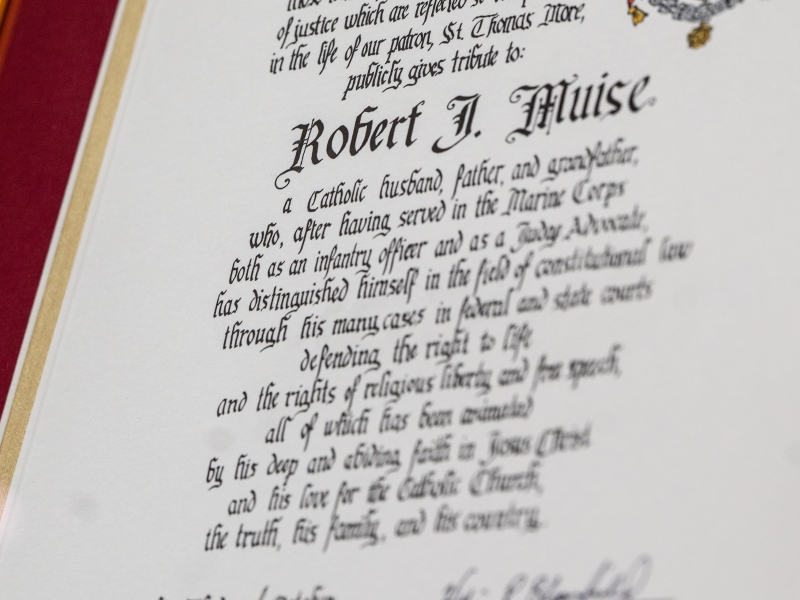 of justice which are reflected
in the life of our patron, St. Thomas More,
publicly gives tribute to:
Robert J. Muise.
a Catholic husband, father, and grandfather,
who, after having served in the Marine Corps
both as an infantry officer and as a Judge Advocate,
has distinguished himself in the field of constitutional law
through his many cases in federal and state courts
defending the right to life
and the rights of religious liberty and free speech,
all of which has been animated
by his deep and abiding faith in Jesus Christ
and his love for the Catholic Church,
the truth, his family, and his country.